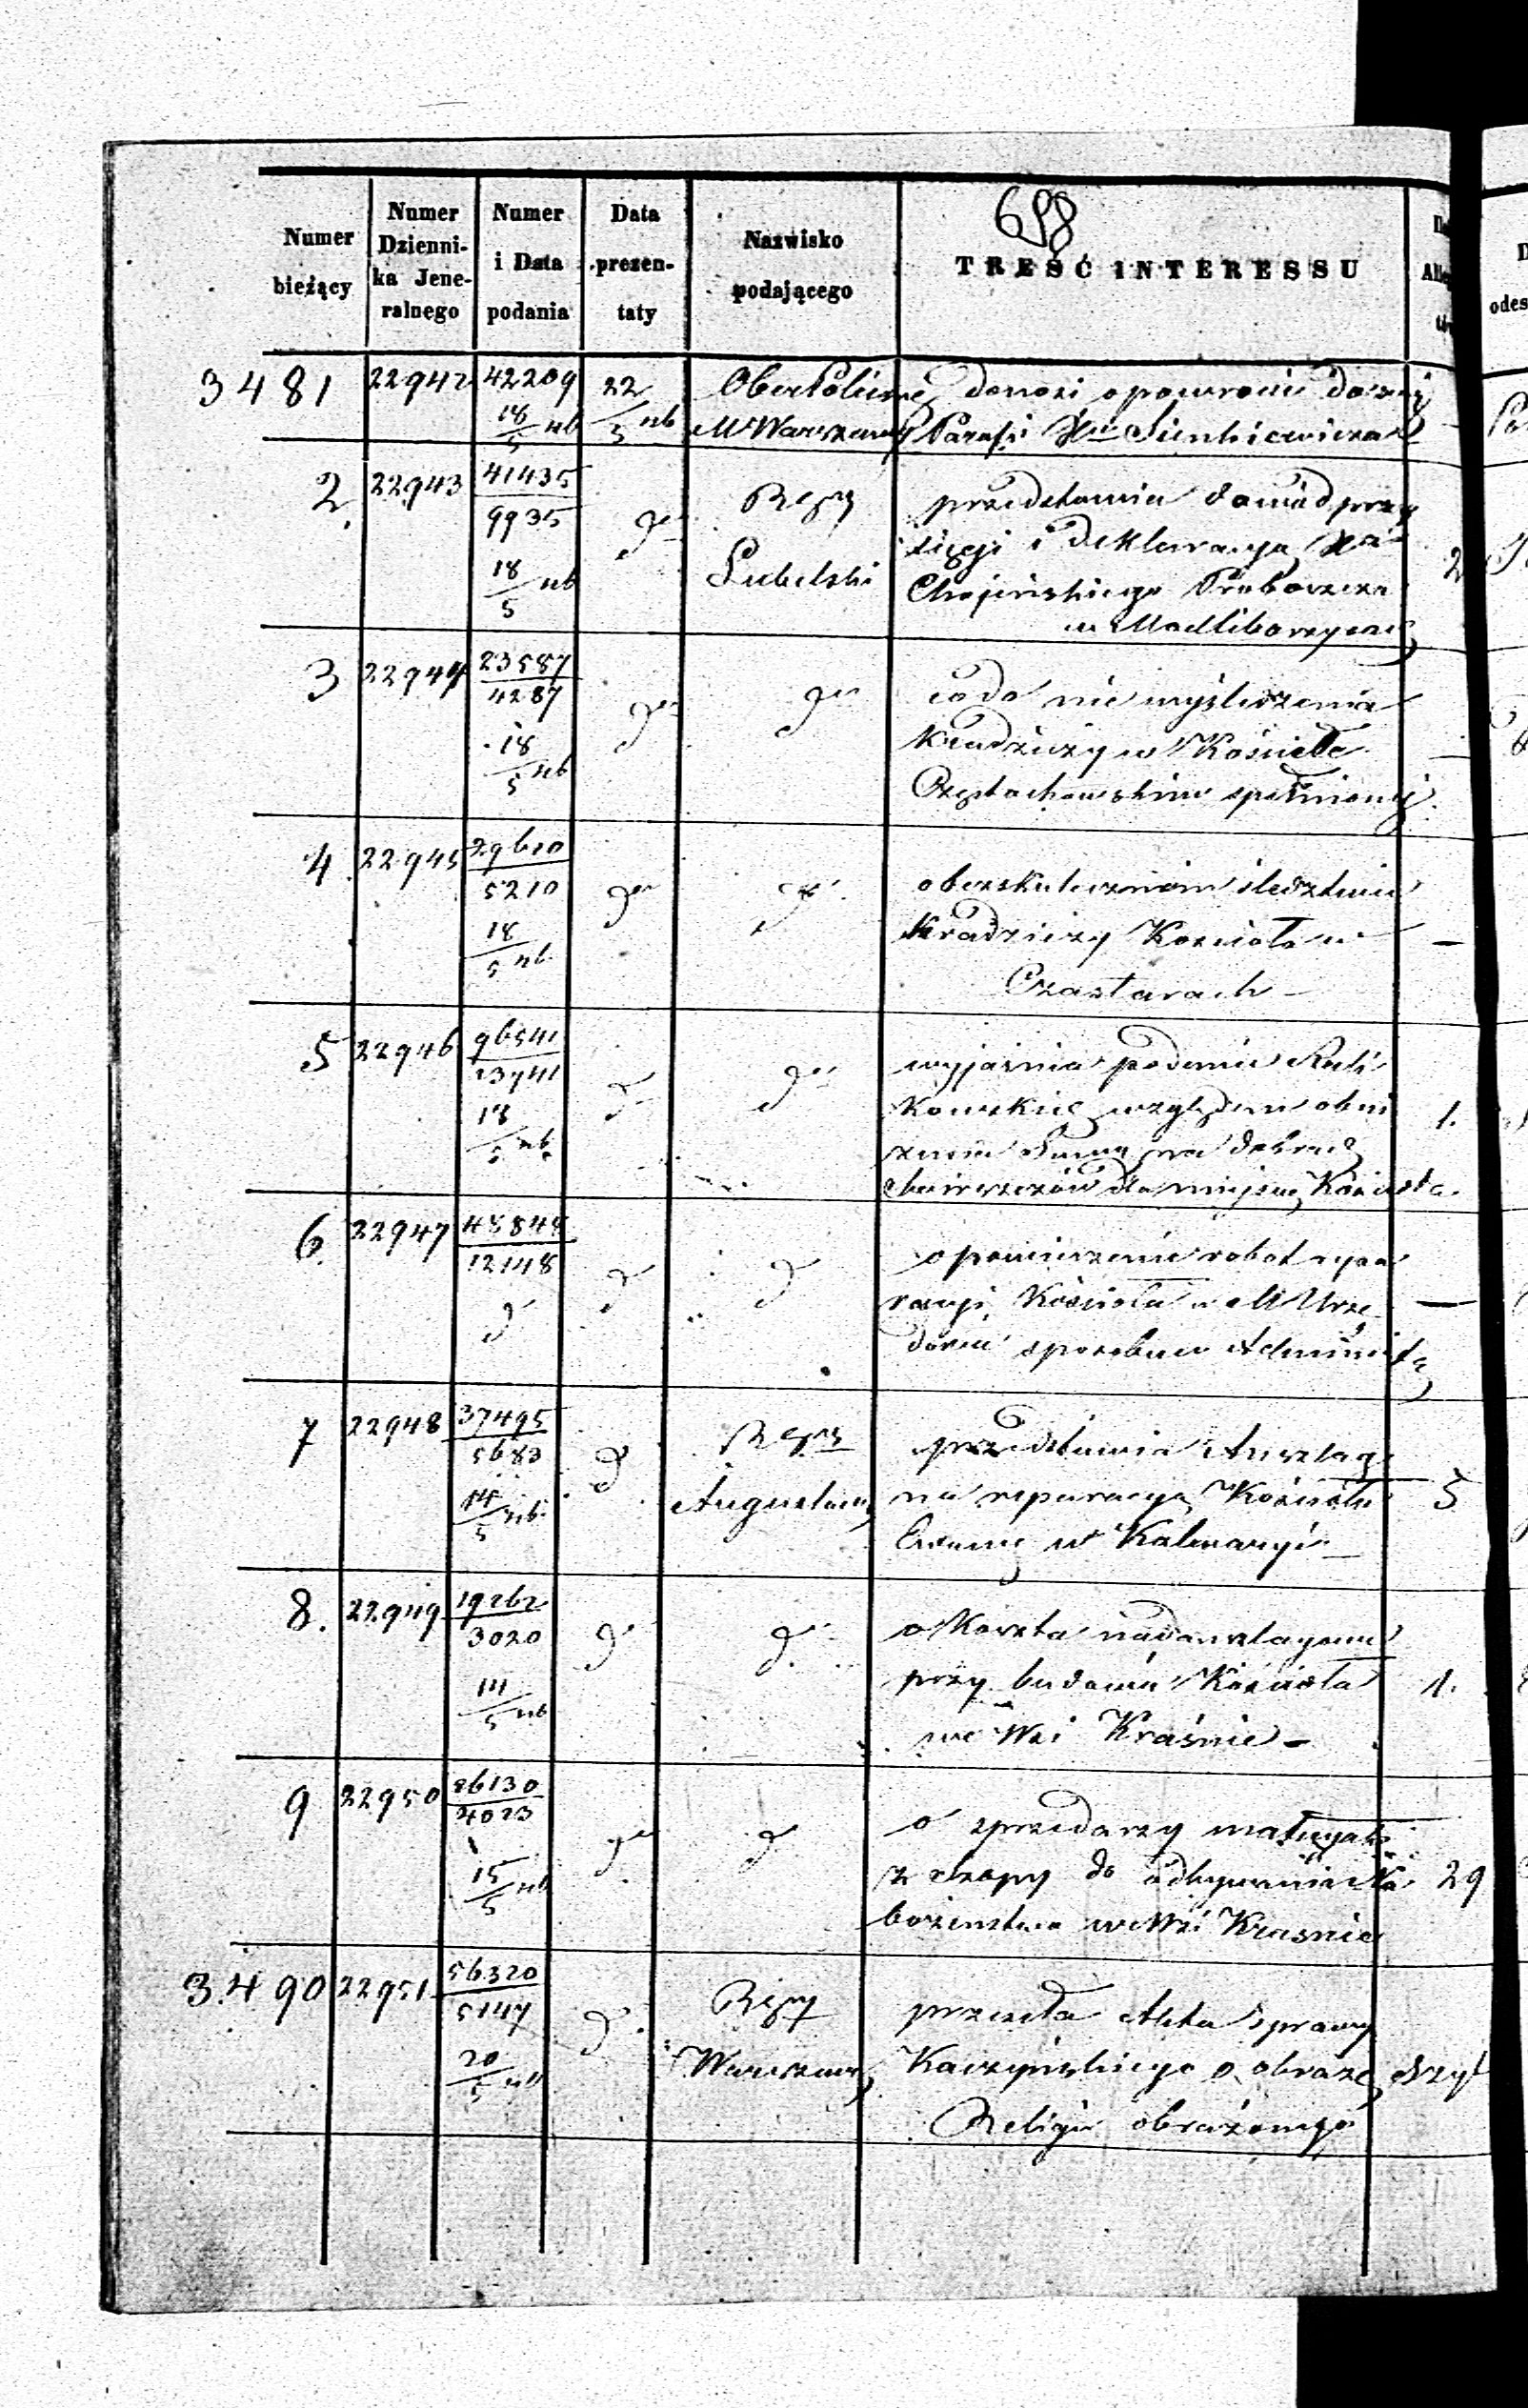 698
Numer bieżący
Numer Dzienni- ka Jene- ralnego
Numer i Data podania
Data prezen- taty
Nazwisko podającego
TREŚĆ INTERESSU
3481 22942 42209 18/5 nb 22/5 nb
Ober Policm
M Warszawy
donosi o powrocie do swej
Parafii Xa Sienkiewicza
2. 22943 41435 9935 18/5 nb do
Rząd
Lubelski
przedstawia dowód przy
sięgi i deklaracyą Xa
Chojeńskiego Proboszcza
w Modliborzycach
2
3 22944 23587 4287 18/5 nb do do
co do nie wyśledzenia
Kradzieży w Kościele
Częstochowskim spełnionej
4. 22945 29610 5210 18/5 nb do do
o bezskuteczném śledztwie
Kradzieży Kościoła w
Czastarach –
5 22946 96541 23741 18/5 nb do do
wyjaśnia podanie
względem
na dobrach
dla miejsc Kościoła
1.
6. 22947 48848 12148 do do do
o powierzenie robot repa
racyi Kościoła w M Urzę
dowie sposobem Administ
7 22948 37495 5683 14/5 nb do
Rząd
Augustow
przedstawia Anszlag
na reparacyą Kościoła
Ewang w Kalwaryi –
5
8. 22949 19262 3020 14/5 nb do do
o Koszta nadanszlagowe
przy budowie Kościoła
we Wsi Kraśnie –
1.
9 22950 26130 4023 15/5 nb do do
o sprzedaży materyałów
z szopy do odbywania Na
bożeństwa we Wsi Krasnie
29
3.490 22951 56320 5147 20/5 nb do
Rząd
Warszaw
przesyła Akta sprawy
Kaczyńskiego o obrazę
Religii obrażonego